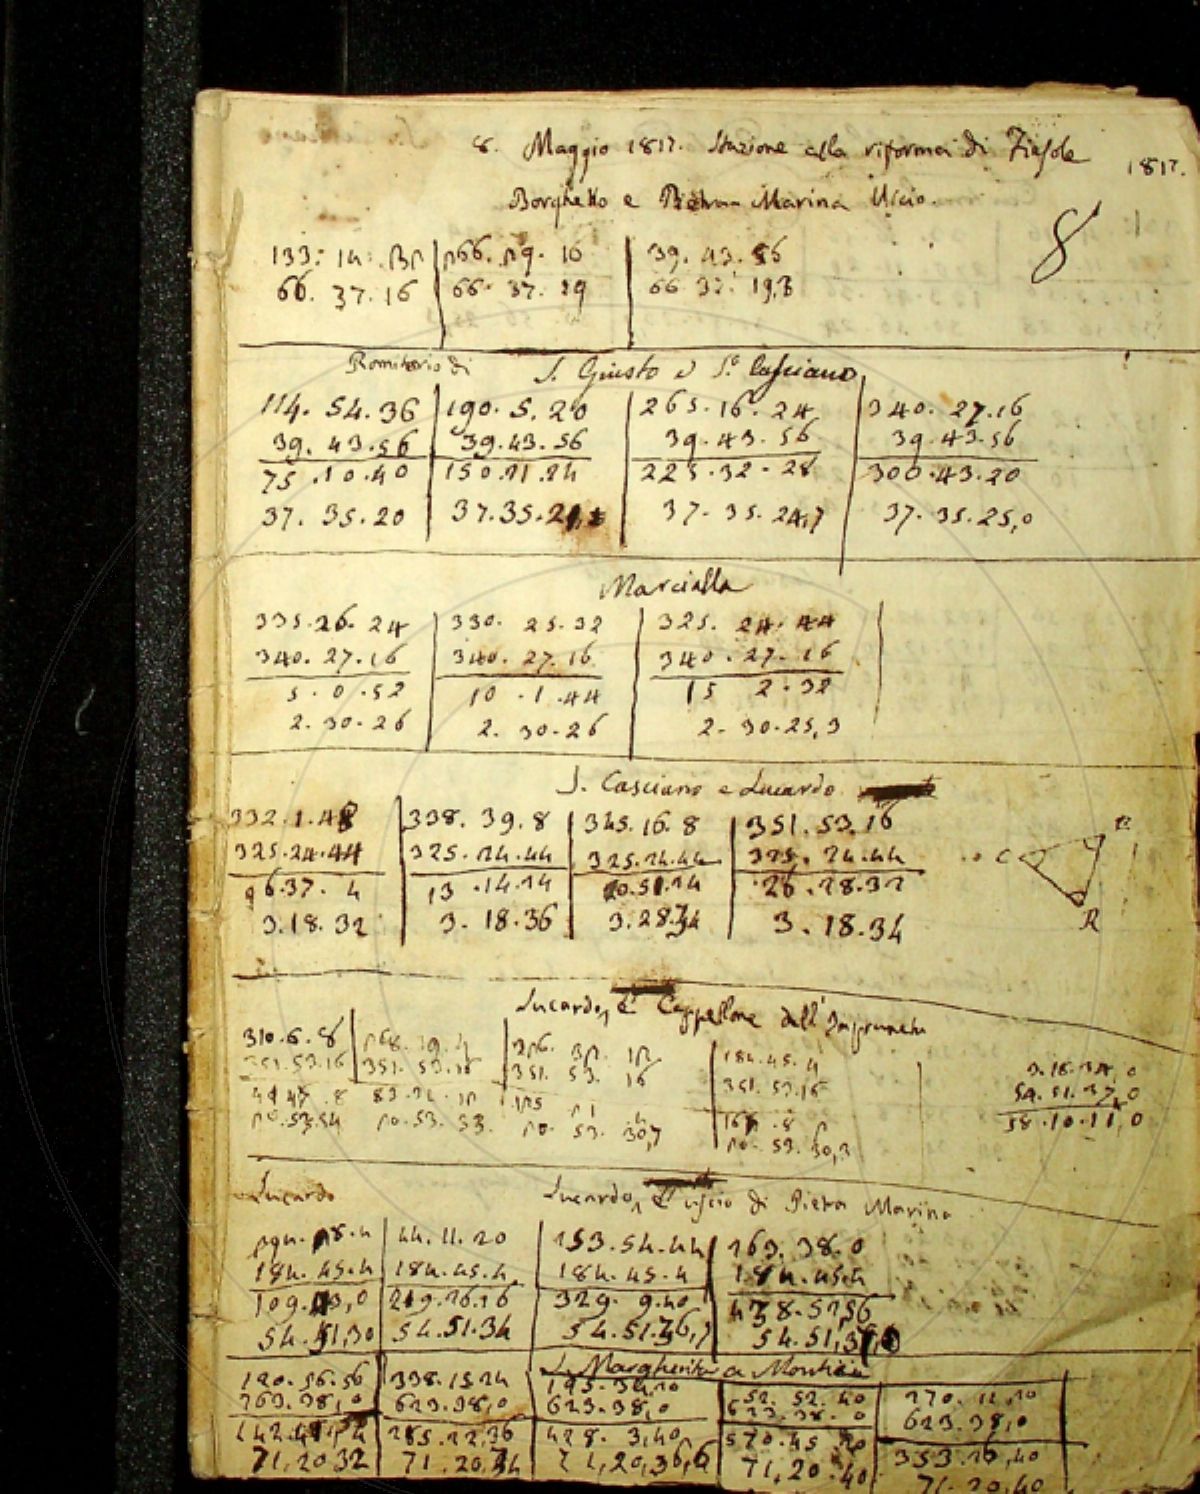 8. Maggio 1817. Stazione alla riforma di Fiesole
1817.
Borghetto e Pietra Marina Uscio.
8
133. 14. | 266. 29. 16 | 39. 43. 56
66. 37. 16 | 66. 37. 19 | 66 37. 19,3
Romitorio di S. Giusto e S. Casciano
114. 54. 36 | 190. 5. 20 | 265. 16. 24 | 340. 27. 16
39. 43. 56 | 39. 43. 56 | 39. 43. 56 | 39. 43. 56
75. 10. 40 | 150. 21. 24 | 225. 32. 28 | 300. 43. 20
37. 35. 20 | 37. 35. 21, | 37. 35. 24,7 | 37. 35. 25,0
Marcialla
335. 26. 24 | 330. 25. 32 | 325. 24. 44
340. 27. 16 | 340. 27. 16 | 340. 27. 16
5. 0. 52 | 10. 1. 44 | 15 2. 32
2. 30. 26 | 2. 30. 26 | 2. 30. 25,3
S. Casciano e Lucardo
332. 1. 48 | 338. 39. 8 | 345. 16. 8 | 351. 53. 16
325. 24. 44 | 325. 24. 44 | 325. 24. 44 | 325. 24. 44
6. 37. 4 | 13. 14. 24 | 51. 24 | 26. 28. 32
3. 18. 32 | 3. 18. 36 | 3. 28. 34 | 3. 18. 34
C
R
Lucardo, e Cappellone dell'Impruneta
310. 6. 8 | 268. 19. 4 | 226. 32. 12 | 184. 45. 4
351. 53. 16 | 351. 53. 16 | 351. 53. 16 | 351. 53. 16
41 47. 8 | 83. 34. 12 | 125 21 4 | 167. 8
20. 53. 34 | 20. 53. 33. | 20. 53. 30,7 | 20. 53. 30,3
3. 18. 34, 0
54. 51. 37, 0
58. 10. 11, 0
Lucardo
Lucardo, e Uscio di Pietra Marina
294. 28. 4 | 44. 11. 20 | 153. 54. 44 | 263. 38. 0
184. 45. 4 | 184. 45. 4. | 184. 45. 4 | 184. 45. 4
109. 43,0 | 219. 26. 16 | 329. 9. 40 | 438. 52,56
54. 51,30 | 54. 51. 34 | 54. 51. 36,7 | 54. 51, 37,0
S. Margherita a Montici
120. 56. 56 | 338. 15 24 | 195. 34,20 | 52. 52. 40 | 270. 11. 20
263. 38,0 | 623. 38,0 | 623. 38,0 | 623. 38. 0 | 623. 38,0
142. 41. 04 | 285. 22,36 | 428. 3,40 | 570. 45 20 | 353. 26,40
71. 20 32 | 71. 20. 34 | 71, 20, 36,6 | 71, 20. 40 | 71. 20,40